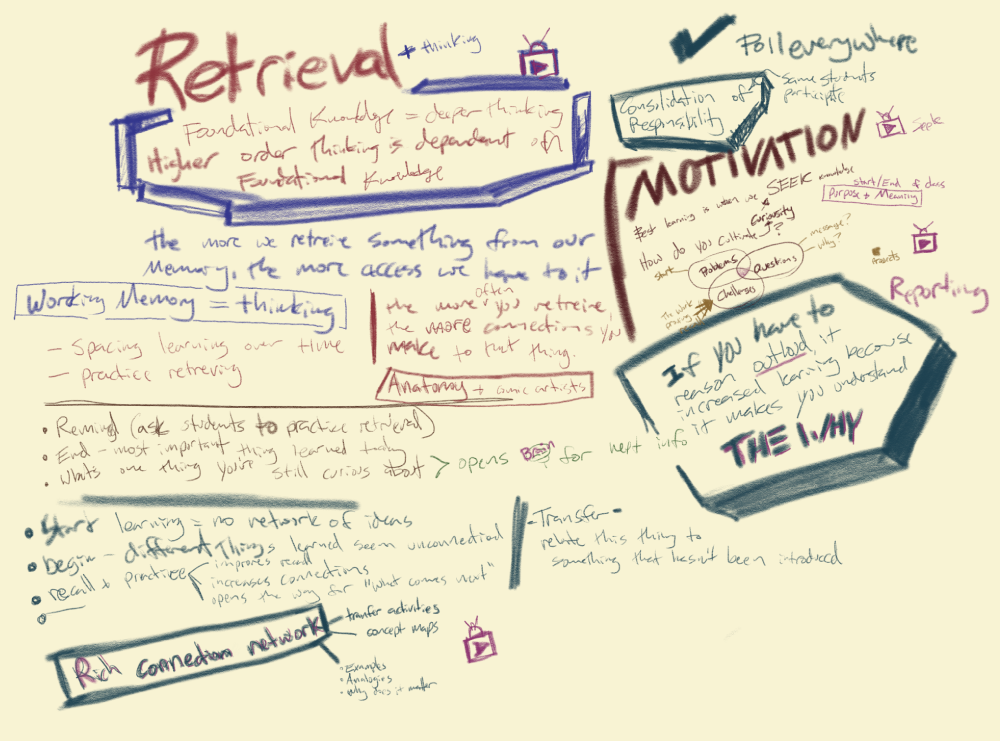 Retrieval + thinking
Foundational Knowledge = deeper thinking
Higher order thinking is dependent on
Foundational Knowledge
the more we retreive something from our
Memory, the more access we have to it
Working Memory = thinking
- Spacing learning over time
- practice retreving
the more often you retreive,
the more connections you
make to that thing.
Anatomy + comic artists
• Remind (ask students to practice retrieval)
• End - most important thing learned today
• what's one thing you're still curious about > opens Brain for next info
• Start learning = no network of ideas
• begin - different Things learned seem unconnected
• recall & practice < improves recall
increases connections
opens the way for "what comes next"
Rich connection network
transfer activities
concept maps
• Examples
• Analogies
• why does it matter
- Transfer -
relate this thing to
something that hasn't been introduced
✓ Polleverywhere
Consolidation of
Responsibility
same students
participate
MOTIVATION
Seele
Best learning is when we SEEK knowledge
start/End of class
Purpose + Meaning
How do you cultivate curiosity?
start
Problems
Questions
Challenges
message?
why?
Reporting
If you have to
reason outloud, it
increased learning because
it makes you understand
THE WHY